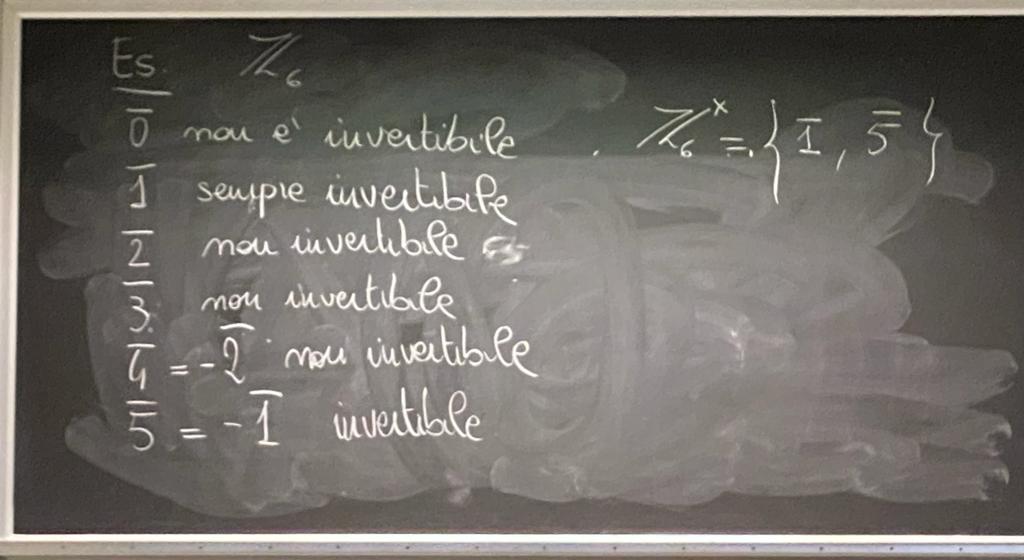 Es. ℤ₆
0̅ non è invertibile
1̅ sempre invertibile
2̅ non invertibile
3̅ non invertibile
4̅ = -2̅ non invertibile
5̅ = -1̅ invertibile
ℤ₆ˣ = {1̅, 5̅}